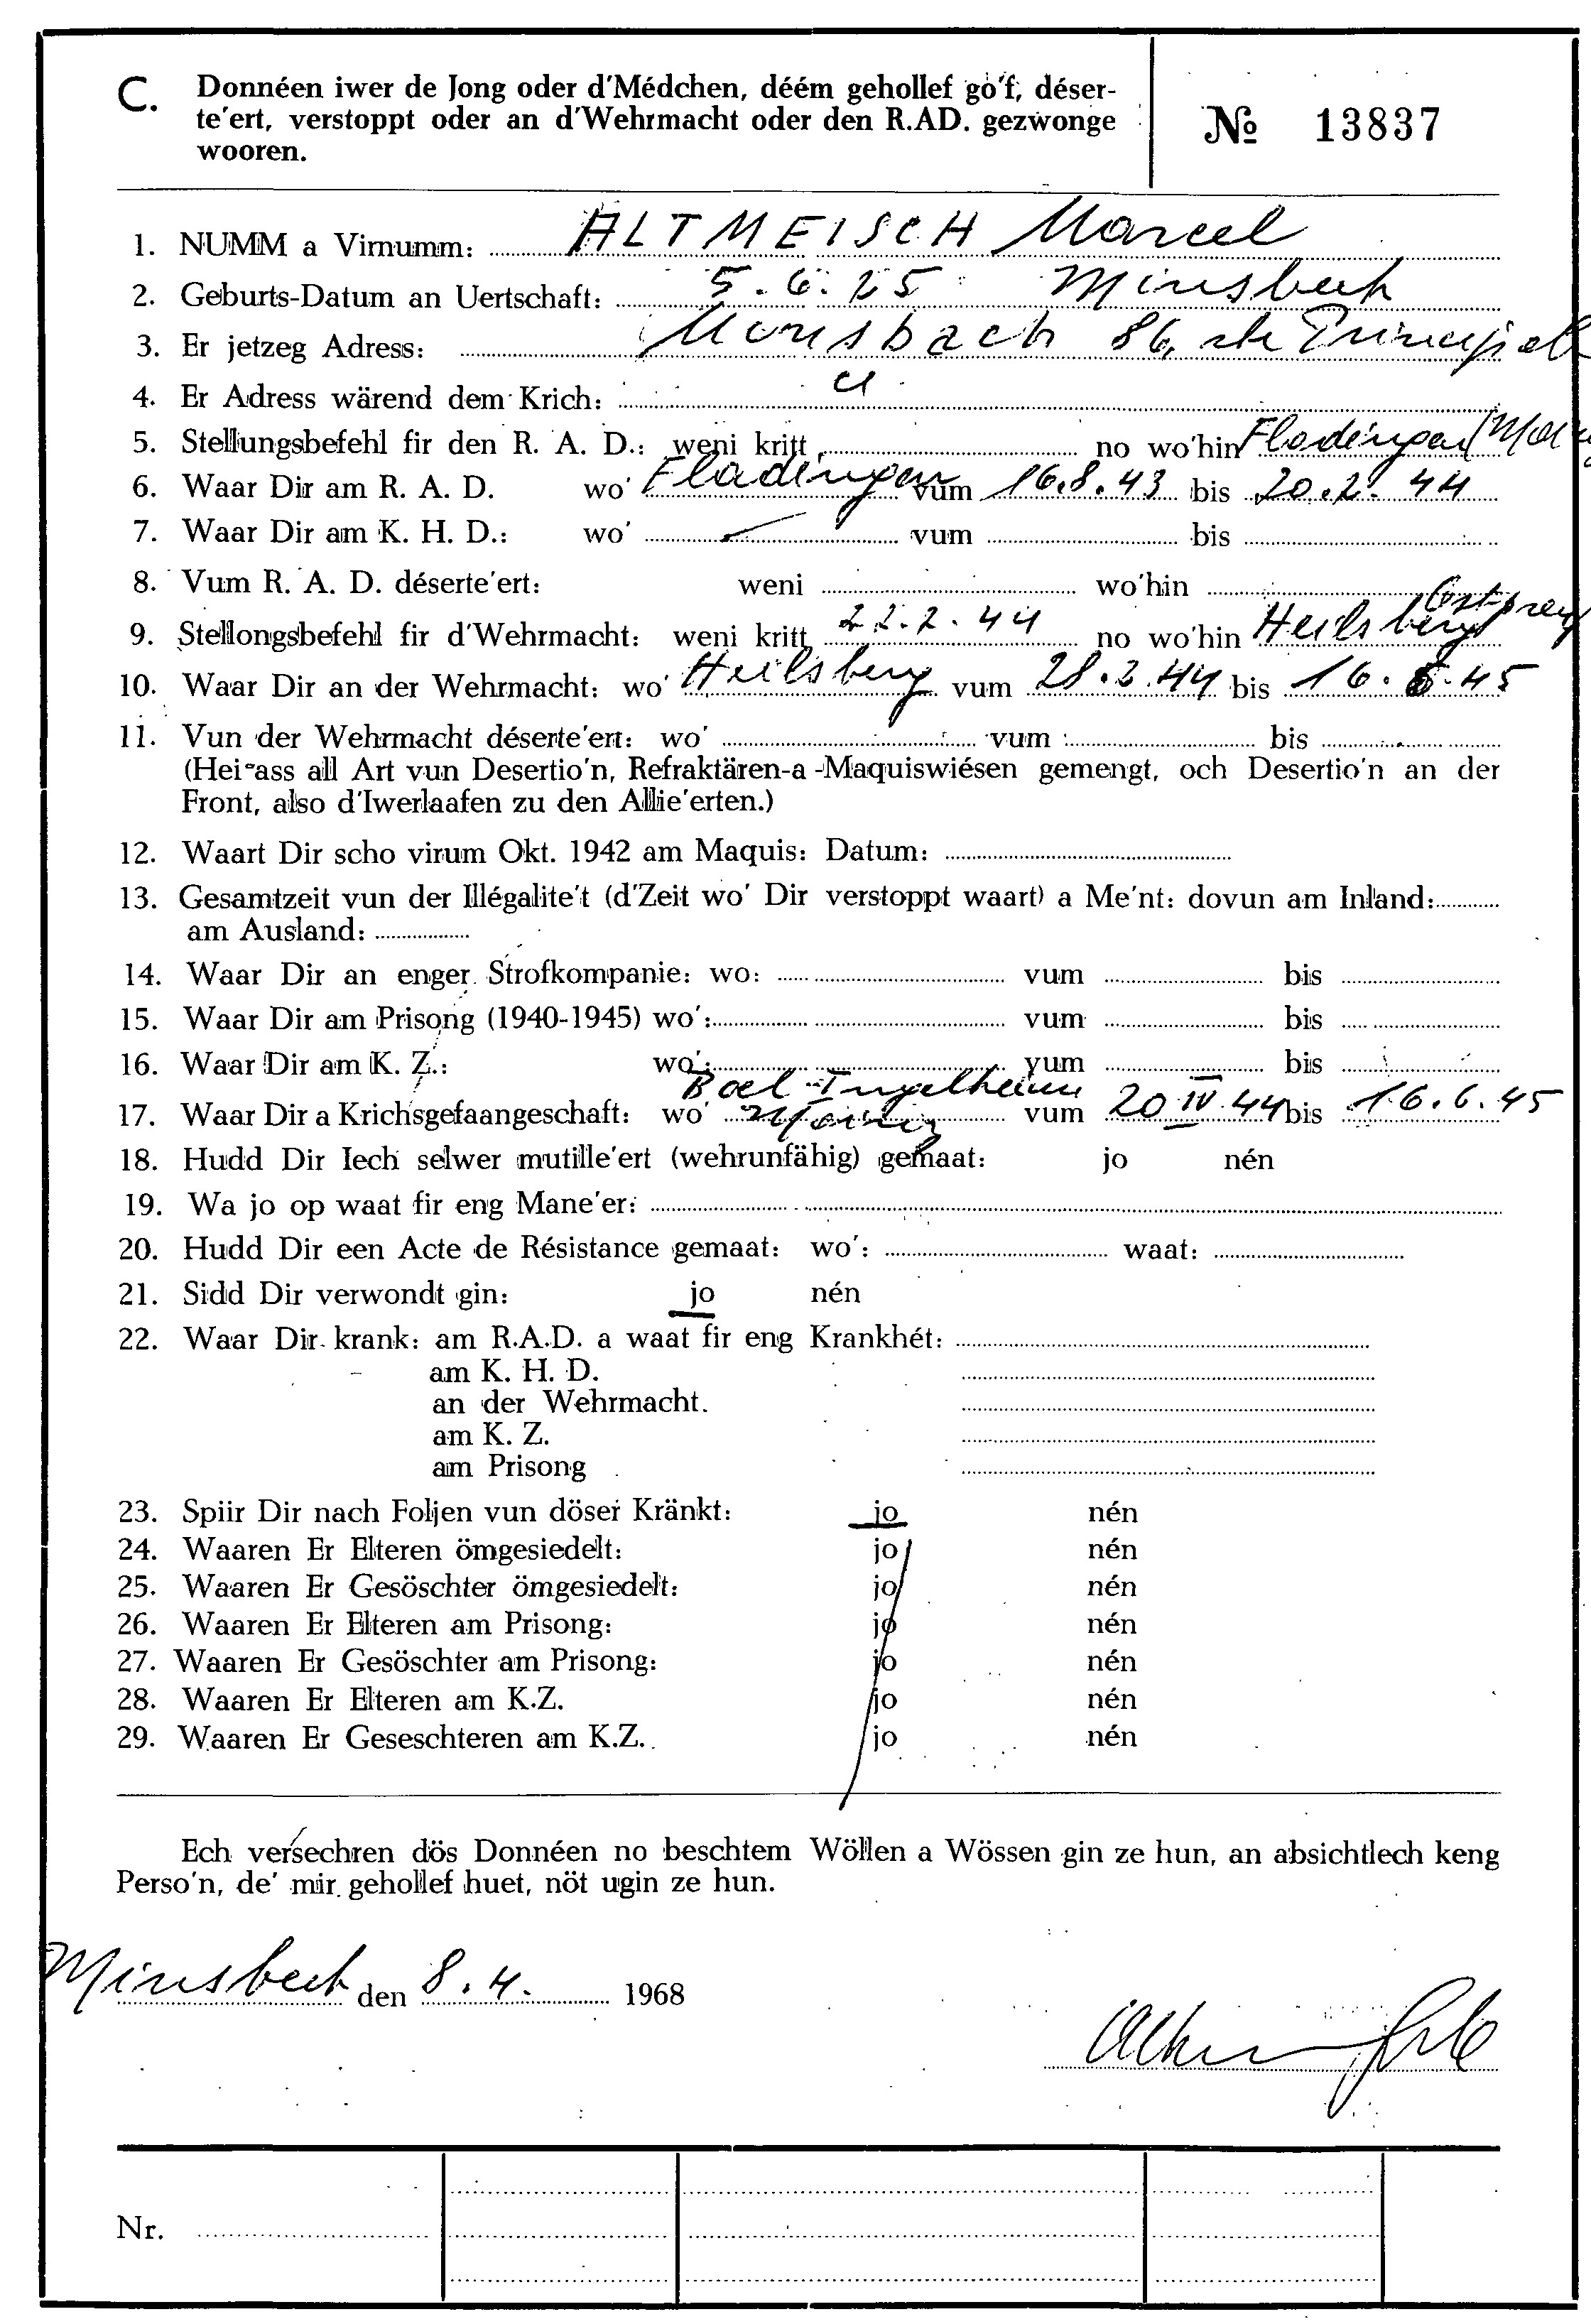 C. Donnéen iwer de Jong oder d'Médchen, déém gehollef go'f, déser-
te'ert, verstoppt oder an d'Wehrmacht oder den R.AD. gezwonge
wooren.
№ 13837
1. NUMM a Virnumm: ALTMEISCH Marcel
2. Geburts-Datum an Uertschaft: 5.6.25 Minsbech
3. Er jetzeg Adress: Munsbach 86, rte Principale
4. Er Adress wärend dem Krich:
5. Stellungsbefehl fir den R. A. D.: weni kritt no wo'hin Fladingen
6. Waar Dir am R. A. D. wo' Fladingen vum 16.8.43 bis 20.2.44
7. Waar Dir am K. H. D.: wo' vum bis
8. Vum R. A. D. déserte'ert: weni wo'hin
9. Stellongsbefehl fir d'Wehrmacht: weni kritt 22.2.44 no wo'hin Heilsberg
10. Waar Dir an der Wehrmacht: wo' Heilsberg vum 28.2.44 bis 16.6.45
11. Vun der Wehrmacht déserte'ert: wo' vum bis
(Hei ass all Art vun Desertio'n, Refraktären-a-Maquiswiésen gemengt, och Desertio'n an der
Front, also d'Iwerlaafen zu den Allie'erten.)
12. Waart Dir scho virum Okt. 1942 am Maquis: Datum:
13. Gesamtzeit vun der Illégalite't (d'Zeit wo' Dir verstoppt waart) a Me'nt: dovun am Inland:
am Ausland:
14. Waar Dir an enger Strofkompanie: wo: vum bis
15. Waar Dir am Prisong (1940-1945) wo': vum bis
16. Waar Dir am K. Z.: wo': vum bis
17. Waar Dir a Krichsgefaangeschaft: wo' Ingelheim Mainz vum 20 IV 44 bis 16.6.45
18. Hudd Dir Iech selwer mutille'ert (wehrunfähig) gemaat: jo nén
19. Wa jo op waat fir eng Mane'er:
20. Hudd Dir een Acte de Résistance gemaat: wo': waat:
21. Sidd Dir verwondt gin: jo nén
22. Waar Dir krank: am R.A.D. a waat fir eng Krankhét:
am K. H. D.
an der Wehrmacht.
am K. Z.
am Prisong
23. Spiir Dir nach Foljen vun döser Kränkt: jo nén
24. Waaren Er Elteren ömgesiedelt: jo nén
25. Waaren Er Gesöschter ömgesiedelt: jo nén
26. Waaren Er Elteren am Prisong: jo nén
27. Waaren Er Gesöschter am Prisong: jo nén
28. Waaren Er Elteren am K.Z. jo nén
29. Waaren Er Geseschteren am K.Z. jo nén
Ech versechren dös Donnéen no beschtem Wöllen a Wössen gin ze hun, an absichtlech keng
Perso'n, de' mir gehollef huet, nöt ugin ze hun.
Minsbech den 8.4. 1968
Nr.